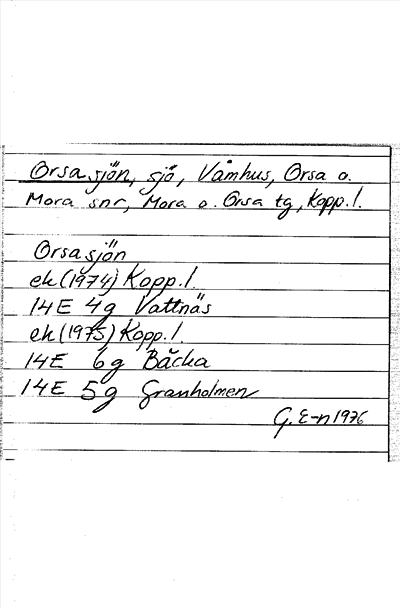 Orsasjön, sjö, Våmhus, Orsa o.
Mora snr, Mora o. Orsa tg, Kopp. l.
Orsasjön
ek (1974) Kopp. l.
14 E 4g Vattnäs
ek (1975) Kopp. l.
14 E 6g Bäcka
14 E 5g Granholmen
G. E-n 1976